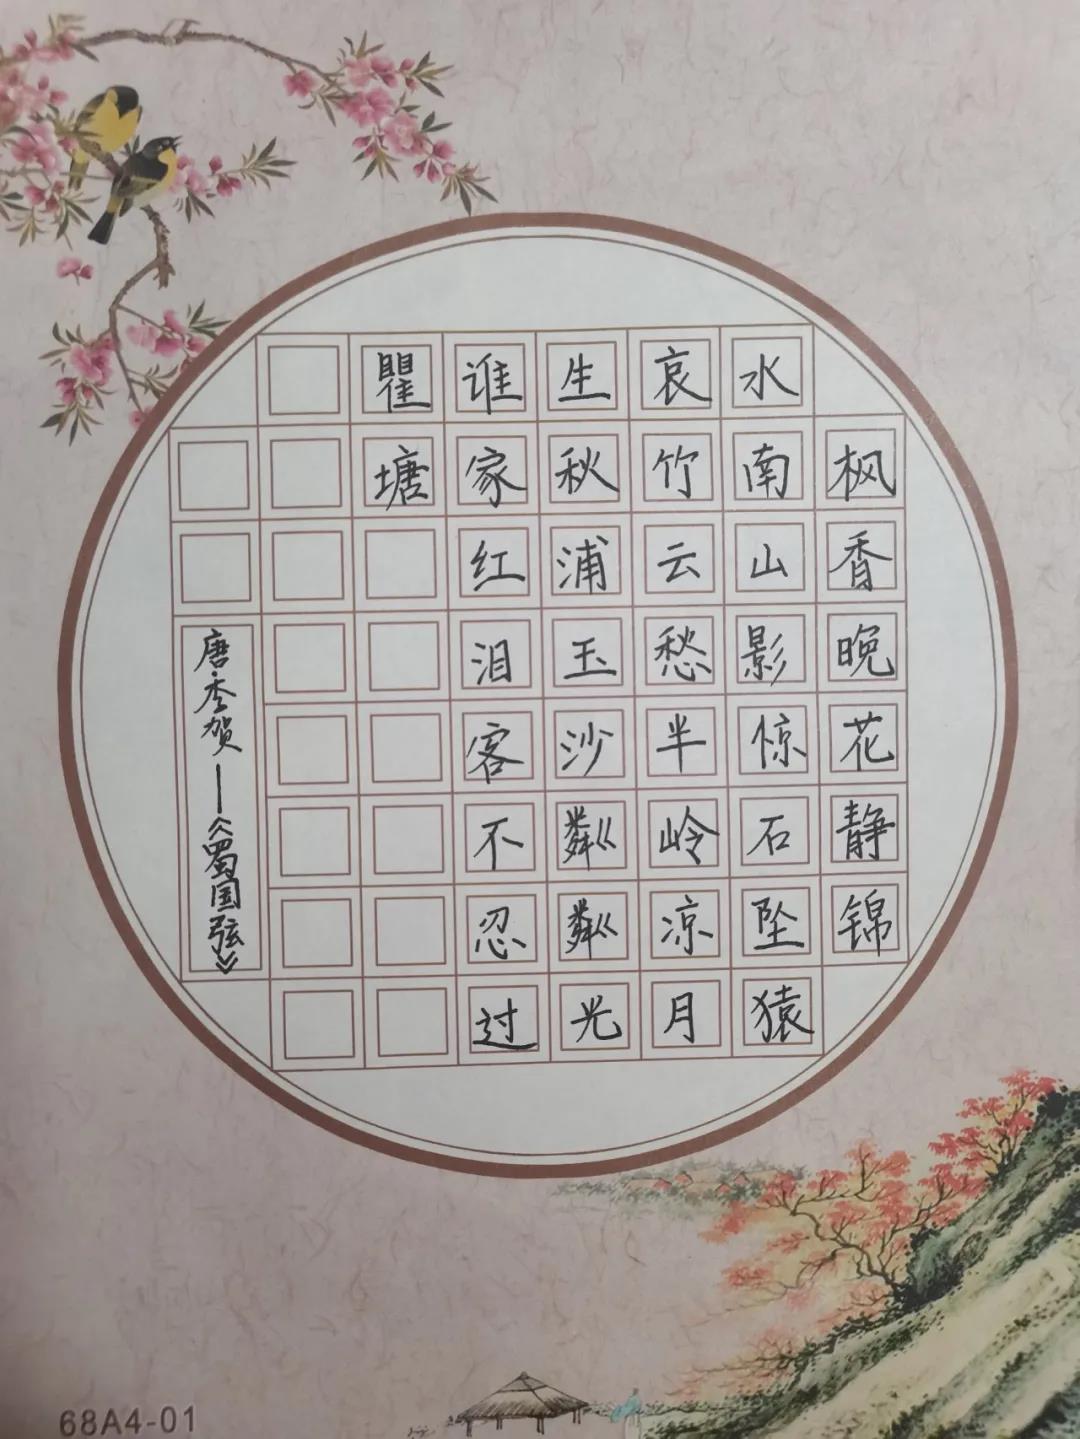 枫香晚花静锦
水南山影惊石坠猿
哀竹云愁半岭凉月
生秋浦玉沙粼粼光
谁家红泪客不忍过
瞿塘
唐·李贺——《蜀国弦》
68A4-01